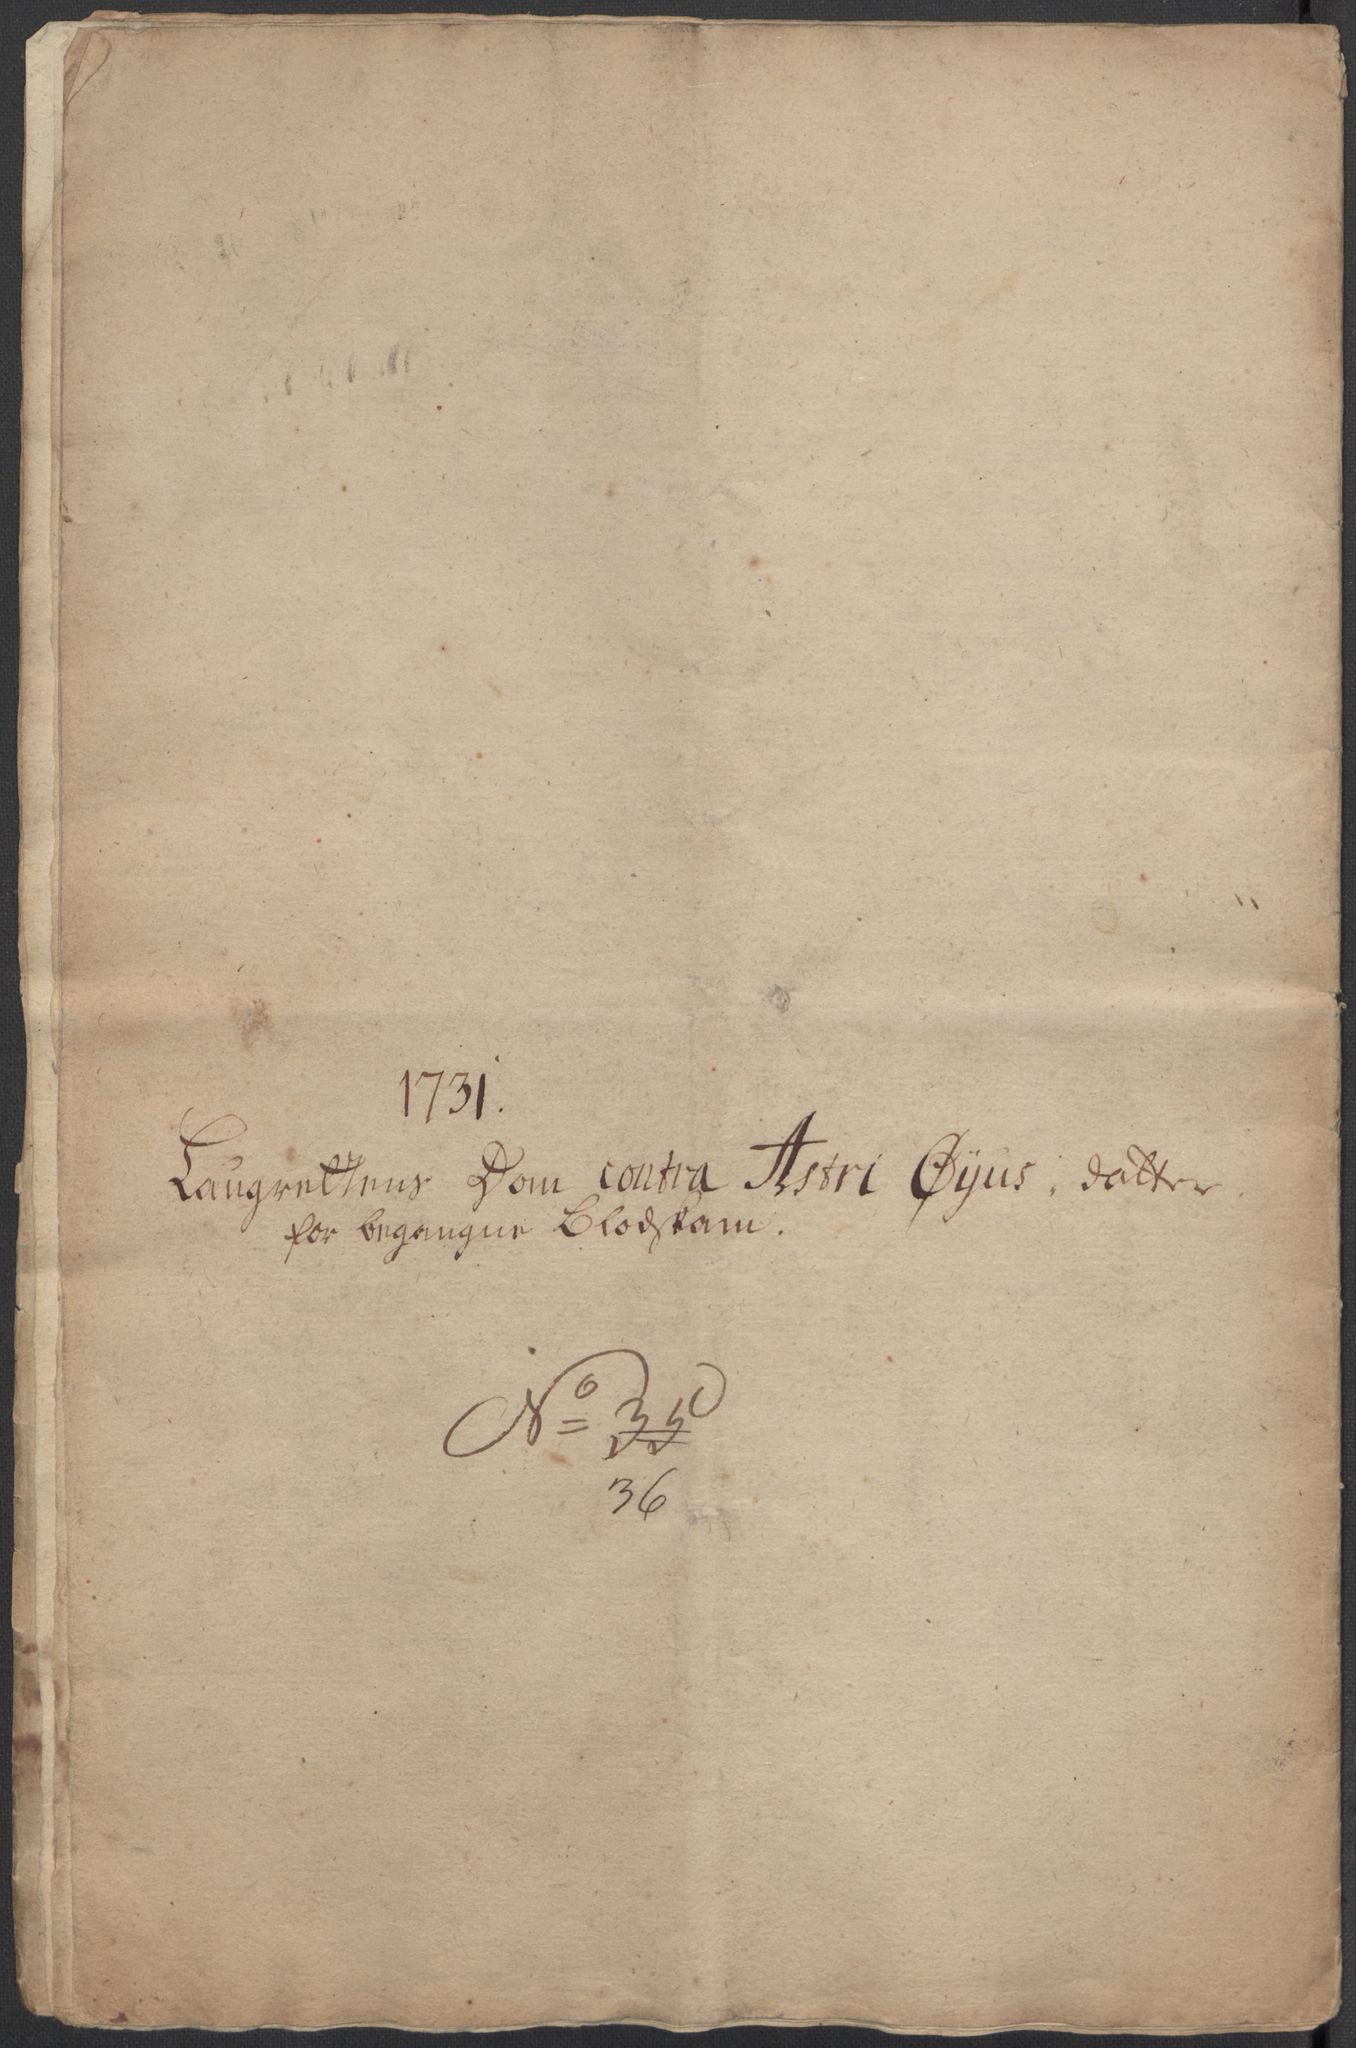 1731.
Laugrettens Dom contra Astri Øÿus, datter.
for begangne Blodskam.
No 35
36